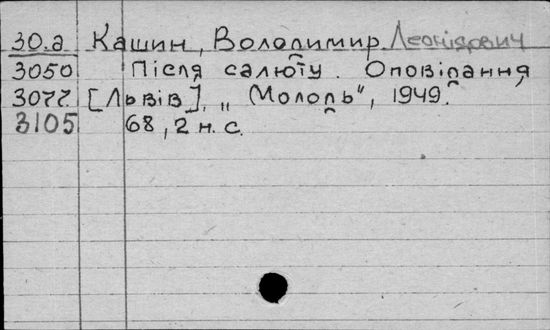 30.а Кашин, Володимир Леонідович
3050 Після салюту. Оповідання
3077 [Львів], „Молодь“, 1949.
3105 68, 2 н. с.